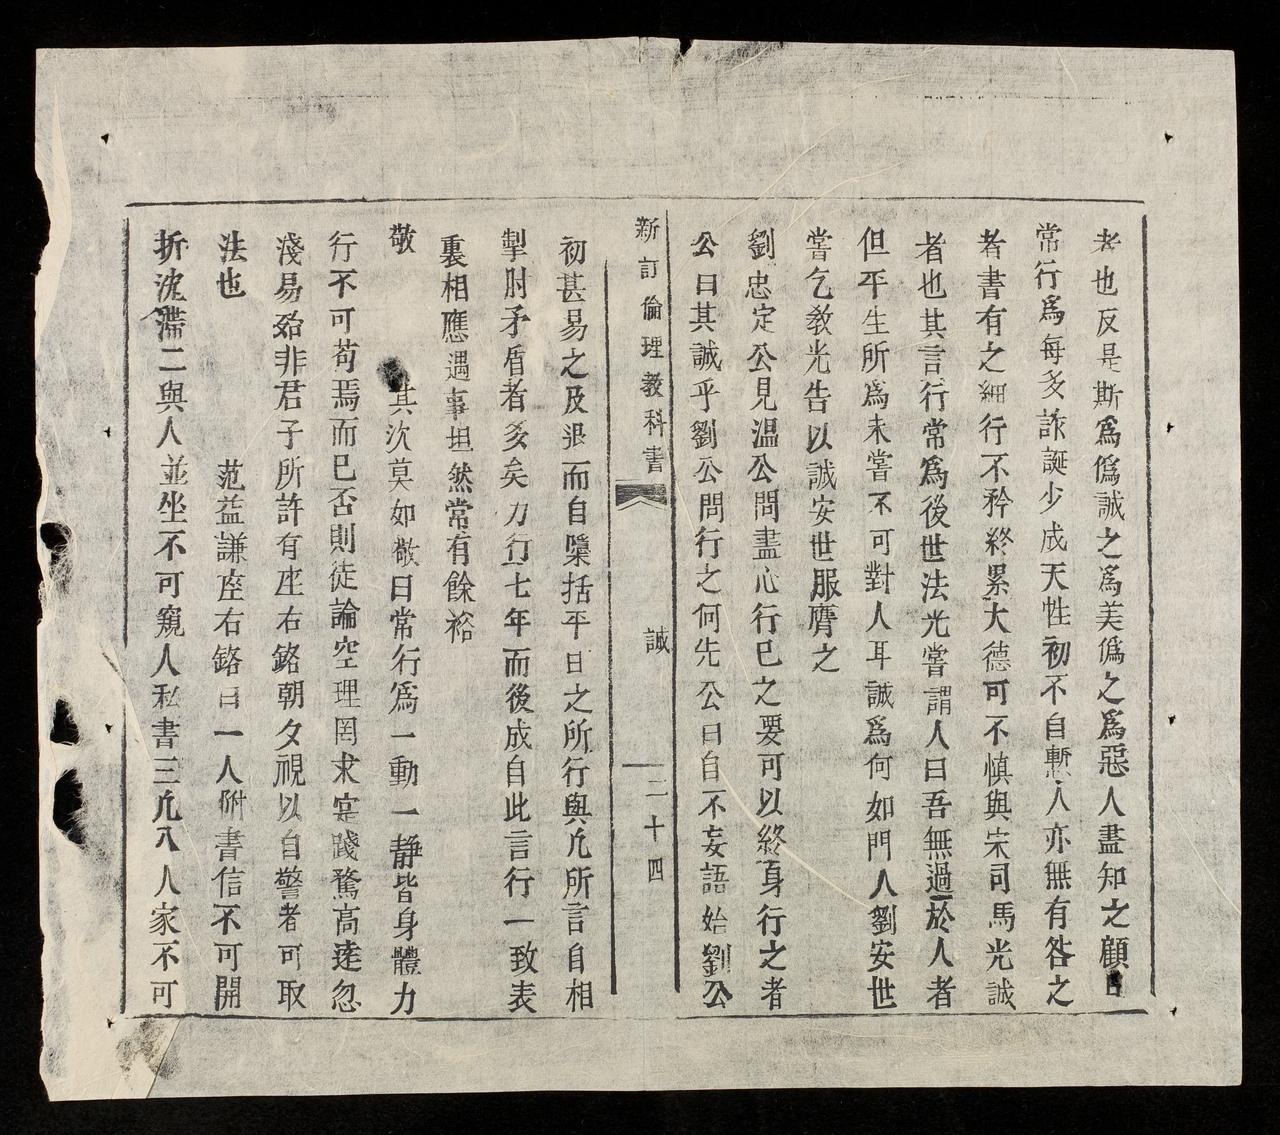 者也反是斯爲僞誠之爲美僞之爲惡人盡知之顧日
常行爲每多詐誕少成天性初不自慙人亦無有咎之
者書有之細行不矜終累大德可不慎與宋司馬光誠
者也其言行常爲後世法光嘗謂人曰吾無過於人者
但平生所爲未嘗不可對人耳誠爲何如門人劉安世
嘗乞敎光告以誠安世服膺之
劉忠定公見溫公問盡心行己之要可以終身行之者
公曰其誠乎劉公問行之何先公曰自不妄語始劉公
新訂倫理教科書 誠 二十四
初甚易之及退而自檃括平日之所行與凡所言自相
掣肘矛盾者多矣力行七年而後成自此言行一致表
裏相應遇事坦然常有餘裕
敬 其次莫如敬日常行爲一動一靜皆身體力
行不可苟焉而已否則徒論空理罔求寔踐騖高逺忽
淺易殆非君子所許有座右銘朝夕視以自警者可取
法也 范益謙座右銘曰一人附書信不可開
折沈滯二與人並坐不可窺人私書三凡入人家不可